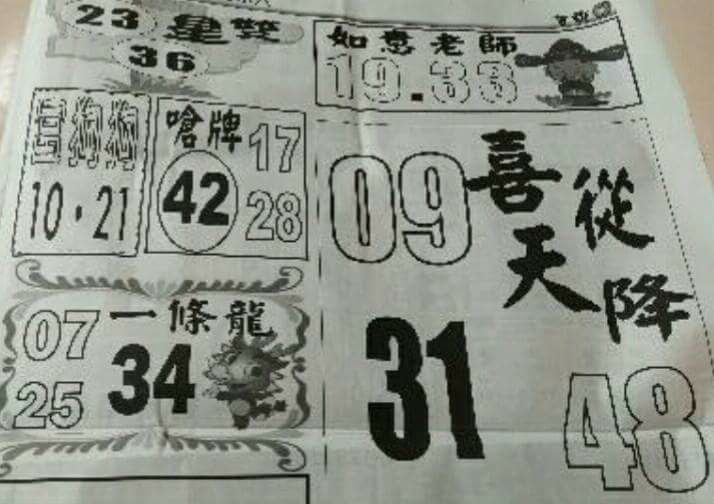 23 星雙
36
如意老師
19.33
狗狗
10.21
嗆牌 17
42 28
09 喜從
天降
31
48
07 一條龍
34
25